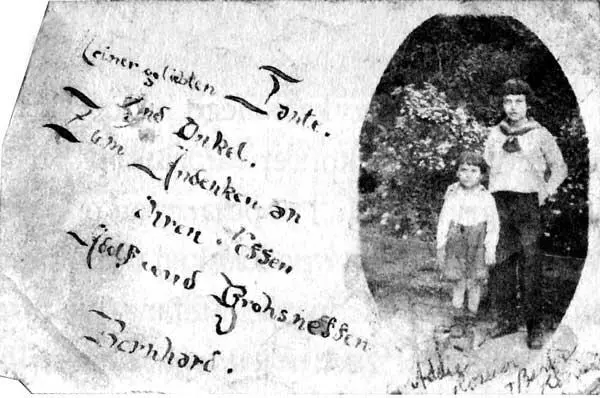 Meiner geliebten Tante.
Und Onkel.
Zum Andenken an
ihren Neffen
Adolf und Grohsneffen
Bernhard.